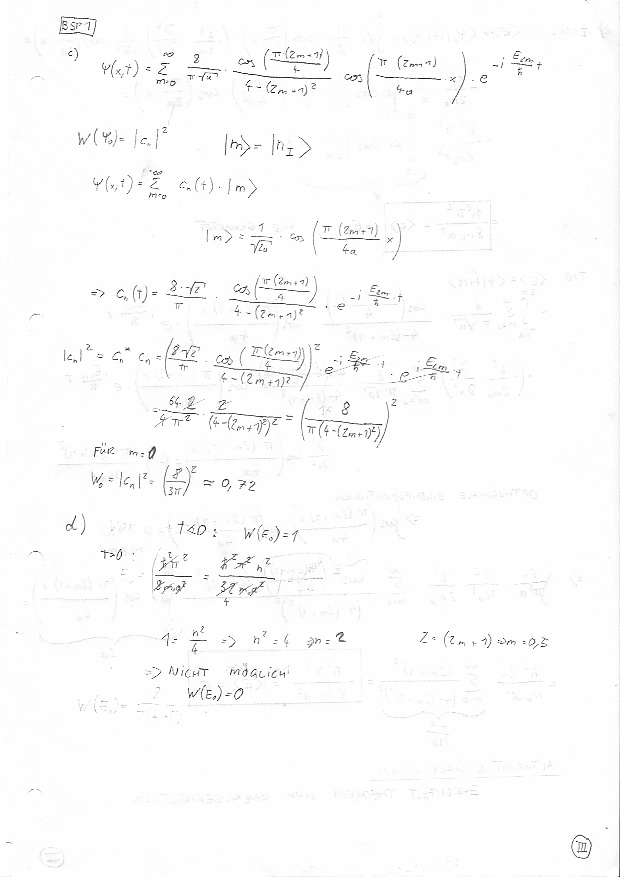 BSP 1
c) Ψ(x,t) = ∑_{m=0}^{∞} 8/(π·√a) · cos(π(2m+1)/4)/(4-(2m+1)²) cos(π(2m+1)/4a · x) · e^{-i E_{2m}/ħ t}
W(Ψ₀) = |cₙ|² |m⟩ = |n_I⟩
Ψ(x,t) = ∑_{m=0}^{∞} cₙ(t) · |m⟩
|m⟩ = 1/√2a · cos(π(2m+1)/4a x)
=> cₙ(T) = 8·√2/π · cos(π(2m+1)/4)/(4-(2m+1)²) · e^{-i E_{2m}/ħ · t}
|cₙ|² = cₙ* cₙ = (8√2/π · cos(π(2m+1)/4)/(4-(2m+1)²))² · e^{-i E_{2m}/ħ t} · e^{i E_{2m}/ħ t}
= 64·2/4π² · 2/(4-(2m+1)²)² = (8/π(4-(2m+1)²))²
FÜR m=0
W₀ = |cₙ|² = (8/3π)² ≈ 0,72
d) t<0: W(E₀)=1
t>0: ħ²π²/8ma² = ħ²π²n²/32ma² 4
1 = n²/4 => n² = 4 => n = 2 2 = (2m+1) => m = 0,5
=> NICHT MÖGLICH
W(E₀)=0
III